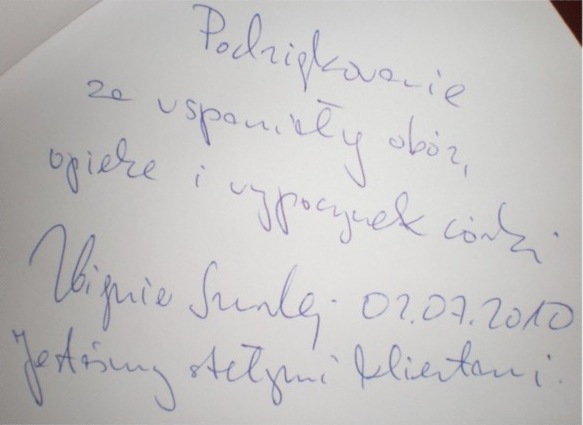 Podziękowanie
za wspaniały obóz,
opiekę i wypoczynek córki.
Zbigniew 02.07.2010
Jesteśmy stałymi klientami.